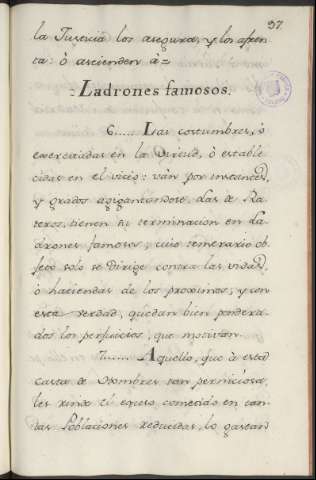 37
la Justicia los asegura, y los afren
ta: ò ascienden à =
Ladrones famosos.
6..... Las costumbres, ò
exercitadas en la Virtud, ò estable
cidas en el vicio: ván por instantes,
y grados agigantandose. Las de Ra
teros, tienen su terminacion en La
drones famosos; cuio temerario ob
jeto solo se dirige contra las vidas,
ò haciendas de los proximos; y con
esta verdad, quedan bien pondera
dos los perjuicios, que motivan.
7...... Aquello, que à esta
casta de Hombres tan perniciosa,
les rinde el exceso cometido en can
tas Poblaciones reducidas, lo gastan